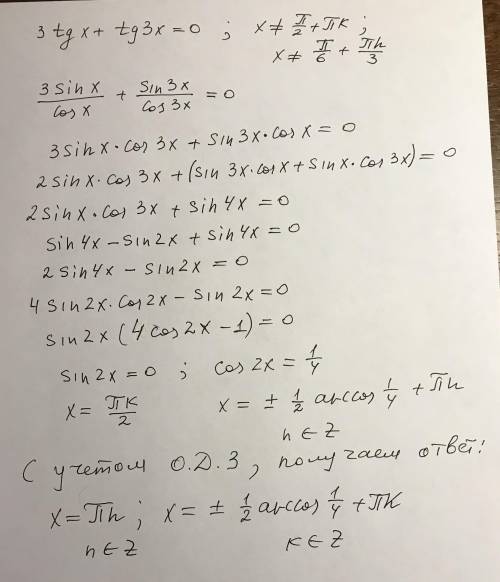 3 tg x + tg 3x = 0 ; x ≠ π/2 + πk ;
x ≠ π/6 + πn/3
3 sin x / cos x + sin 3x / cos 3x = 0
3 sin x · cos 3x + sin 3x · cos x = 0
2 sin x · cos 3x + (sin 3x · cos x + sin x · cos 3x) = 0
2 sin x · cos 3x + sin 4x = 0
sin 4x − sin 2x + sin 4x = 0
2 sin 4x − sin 2x = 0
4 sin 2x · cos 2x − sin 2x = 0
sin 2x (4 cos 2x − 1) = 0
sin 2x = 0 ; cos 2x = 1/4
x = πk/2 x = ± 1/2 arccos 1/4 + πn
n ∈ Z
С учетом О.Д.З, получаем ответ:
x = πn ; x = ± 1/2 arccos 1/4 + πk
n ∈ Z k ∈ Z